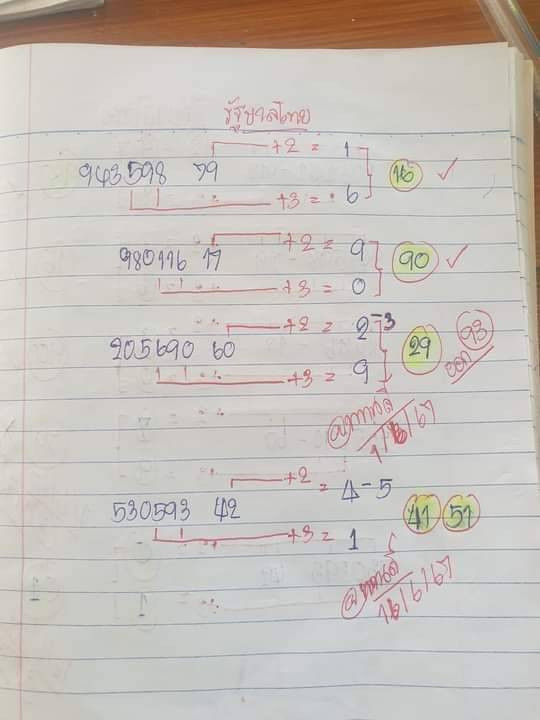 รัฐบาลไทย
+2 = 1
943598 79 16 ✓
+3 = 6
+2 = 9
980116 17 90 ✓
+3 = 0
+2 = 2-3
205690 60 29 93
+3 = 9 ออก
1/6/67
+2 = 4-5
530593 42 41 51
+3 = 1
16/6/67